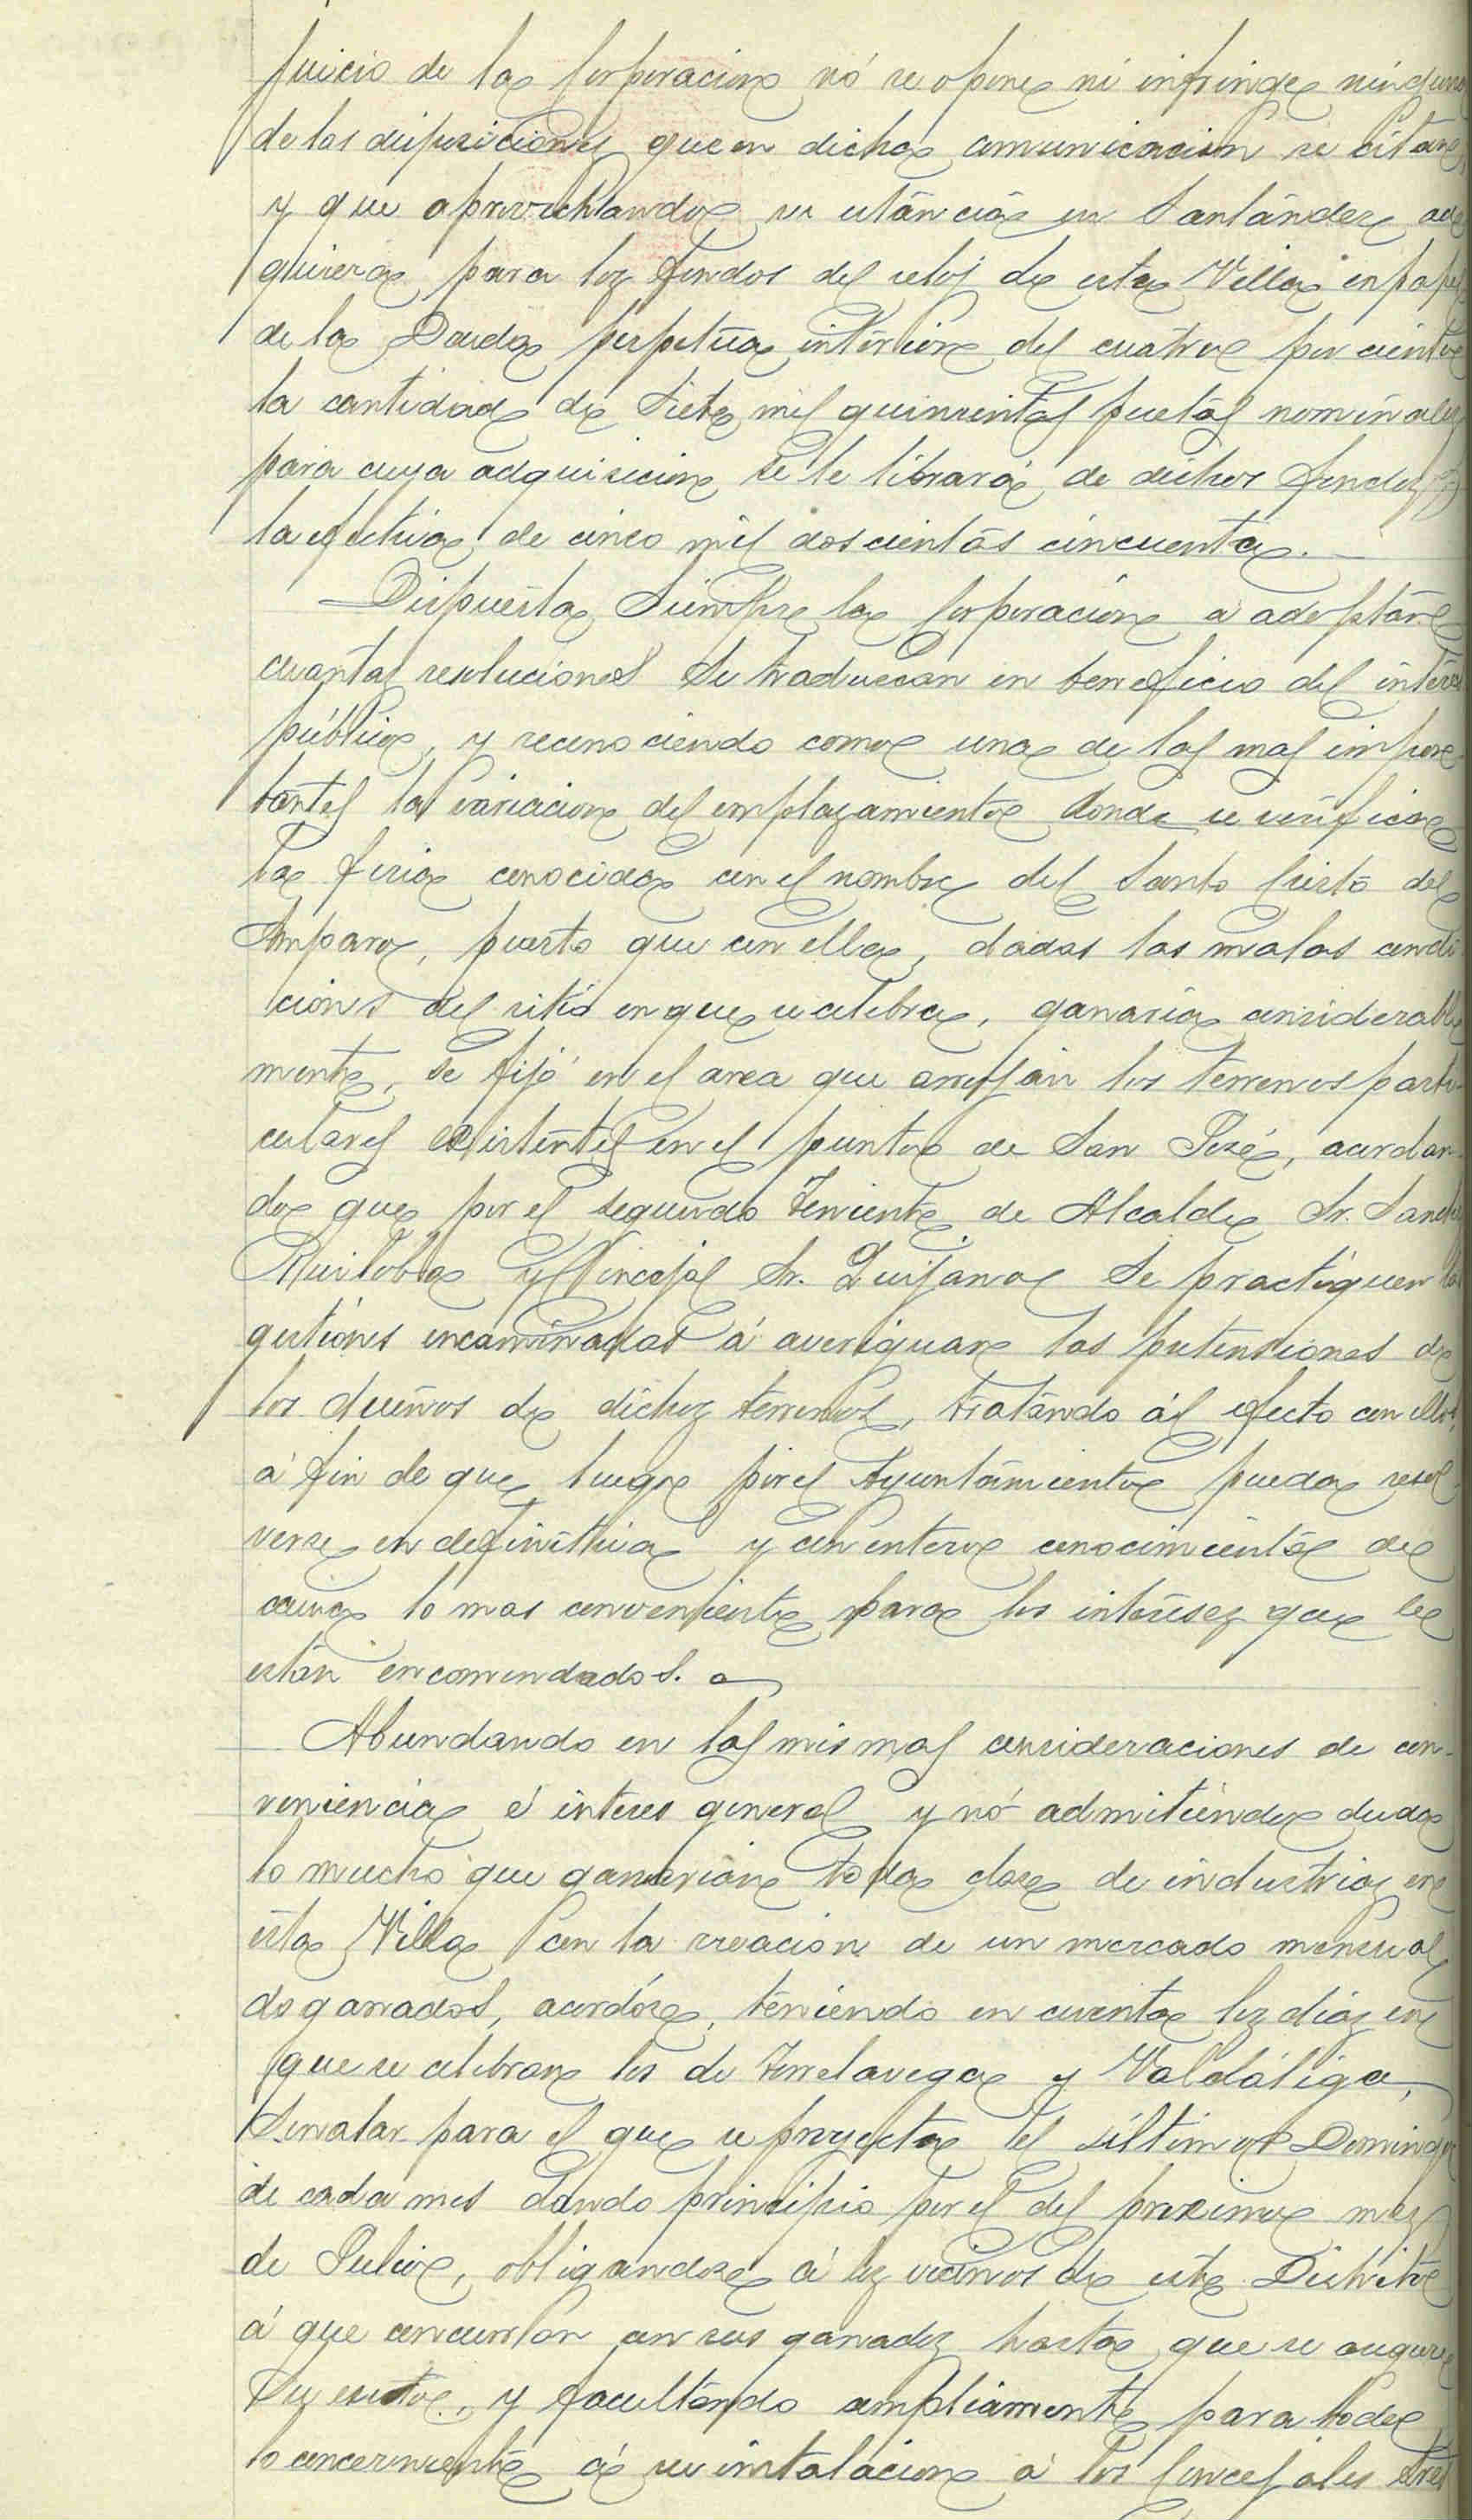 juicio de la Corporacion nó se opone ni infringe ninguna
de las disposiciones que en dicha comunicacion se citan,
y que aprovechando su estáncia en Santánder ad
quiera para los fondos del reloj de esta Villa en papel
de la Deuda perpetua interior del cuatro por ciento
la cantidad de Siete mil quinientas pesetas nominales
para cuya adquisicion se le librará de dichos fondos
la efectiva de cinco mil doscientas cincuenta.
Dispuesta Siempre la Corporacion a adoptar
cuantas resoluciones Se traduzcan en beneficio del interés
público, y reconociendo como una de las mas impor
tantes la variacion del emplazamiento donde se verifica
la feria conocida con el nombre del Santo Cristo del
Amparo, puesto que con ella, dadas las malas condi
ciones del sitio en que se celebra, ganaria considerable
mente, se fijó en el area que arrojan los terrenos parti
culares existentes en el punto de San José, acordan-
do que por el segundo teniente de Alcalde Sr. Sanchez
Ruiloba y Concejal Sr. Quijano Se practiquen las
gestiones encaminadas á averiguar las pretensiones de
los dueños de dichos terrenos, tratándo al efecto con ellos,
a fin de que luego por el Ayuntamiento pueda resol
verse en definitiva y con entero conocimiento de
causa lo mas conveniente para los intereses que le
están encomendados.
Abundando en las mismas consideraciones de con-
veniencia é interes general y nó admitiendo duda
lo mucho que ganarian toda clase de industrias en
esta Villa con la creacion de un mercado mensual
de ganados, acordóse, teniendo en cuenta los dias en
que se celebran los de Torrelavega y Valdáliga,
Senalar para el que se proyecta el último Domingo
de cada mes dando principio por el del proximo mes
de Julio, obligandose á los vecinos de este Distrito
á que concurran con sus ganados hasta que se asegure
Su exito, y facultando ampliamente para todo
lo concerniente á su instalacion a los Concejales Sres